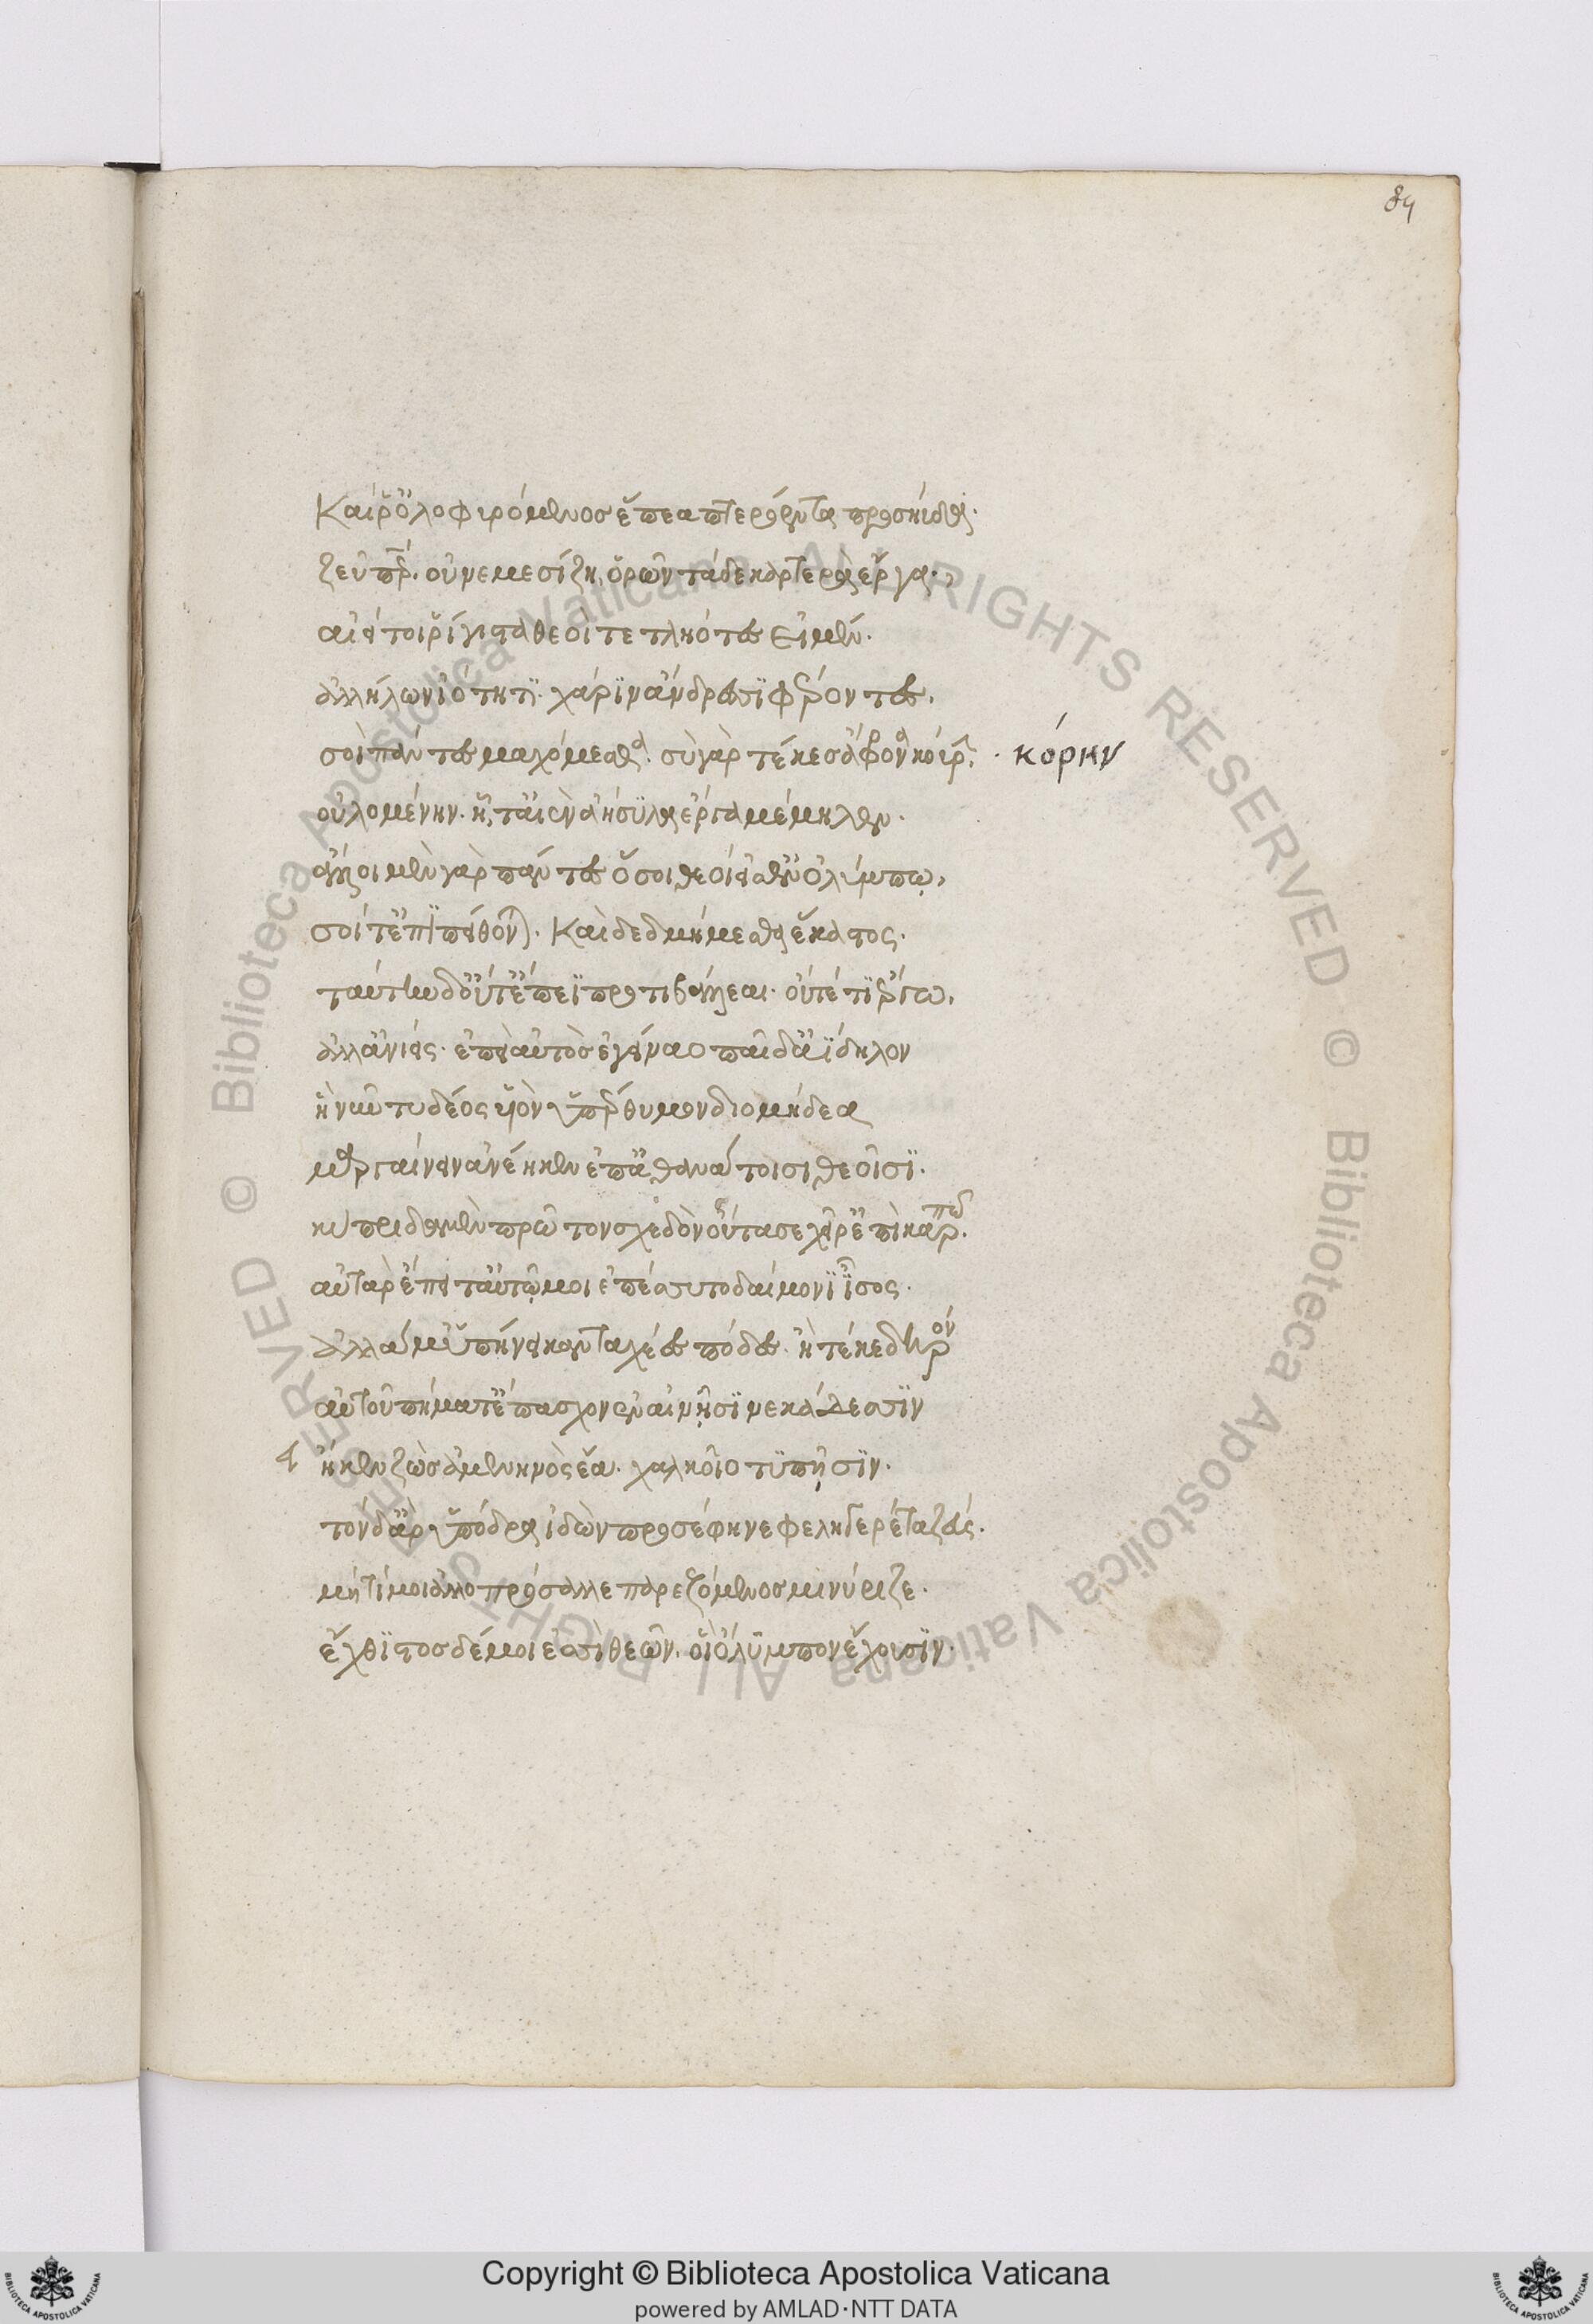 84
Καί ῥ' ὀλοφυρόμενος ἔπεα πτερόεντα προσηύδα·
ζεῦ περ. οὐ νεμεσίζῃ, ὁρῶν τάδε καρτερὰ ἔργα·
αἰεί τοι ῥίγιστα θεοὶ τετληότες εἰμέν.
ἀλλήλων ἰότητι. χάριν ἄνδρεσσι φέροντες.
σοὶ πάντες μαχόμεσθα. σὺ γὰρ τέκες ἄφρονα κούρ. · κόρην
οὐλομένην. ᾗ τ' αἰὲν ἀήσυλα ἔργα μέμηλεν.
ἄλλοι μὲν γὰρ πάντες ὅσοι θεοί εἰσ' ἐν ὀλύμπῳ,
σοί τ' ἐπιπείθονται. Καὶ δεδμήμεσθα ἕκαστος.
ταύτην δ' οὔτ' ἔπεϊ προτιβάλλεαι. οὔτέ τι ἔργω,
ἀλλ' ἀνιεῖς. ἐπεὶ αὐτὸς ἐγείναο παῖδ' ἀΐδηλον
ἣ νῦν τυδέος υἱὸν ὑπέρθυμον διομήδεα
μαργαίνειν ἀνέηκεν ἐπ' ἀθανάτοισι θεοῖσι.
κύπριδα μὲν πρῶτον σχεδὸν οὔτασε χεῖρ' ἐπὶ καρπῶ.
αὐτὰρ ἔπειτ' αὐτῷ μοι ἐπέσσυτο δαίμονι ἶσος.
ἀλλά μ' ὑπήνεικαν ταχέες πόδες. ἦ τέ κε δηρὸν
αὐτοῦ πήματ' ἔπασχον ἐν αἰνῇσι νεκάδεσσιν
ἤ κεν ζὼς ἀμενηνὸς ἔα. χαλκοῖο τυπῇσιν.
τὸν δ' ἄρ' ὑπόδρα ἰδὼν προσέφη νεφεληγερέτα ζεύς.
μή τί μοι ἀλλοπρόσαλλε παρεζόμενος μινύριζε.
ἔχθιστος δέ μοί ἐσσι θεῶν. οἳ ὄλυμπον ἔχουσιν.
Copyright © Biblioteca Apostolica Vaticana
powered by AMLAD·NTT DATA